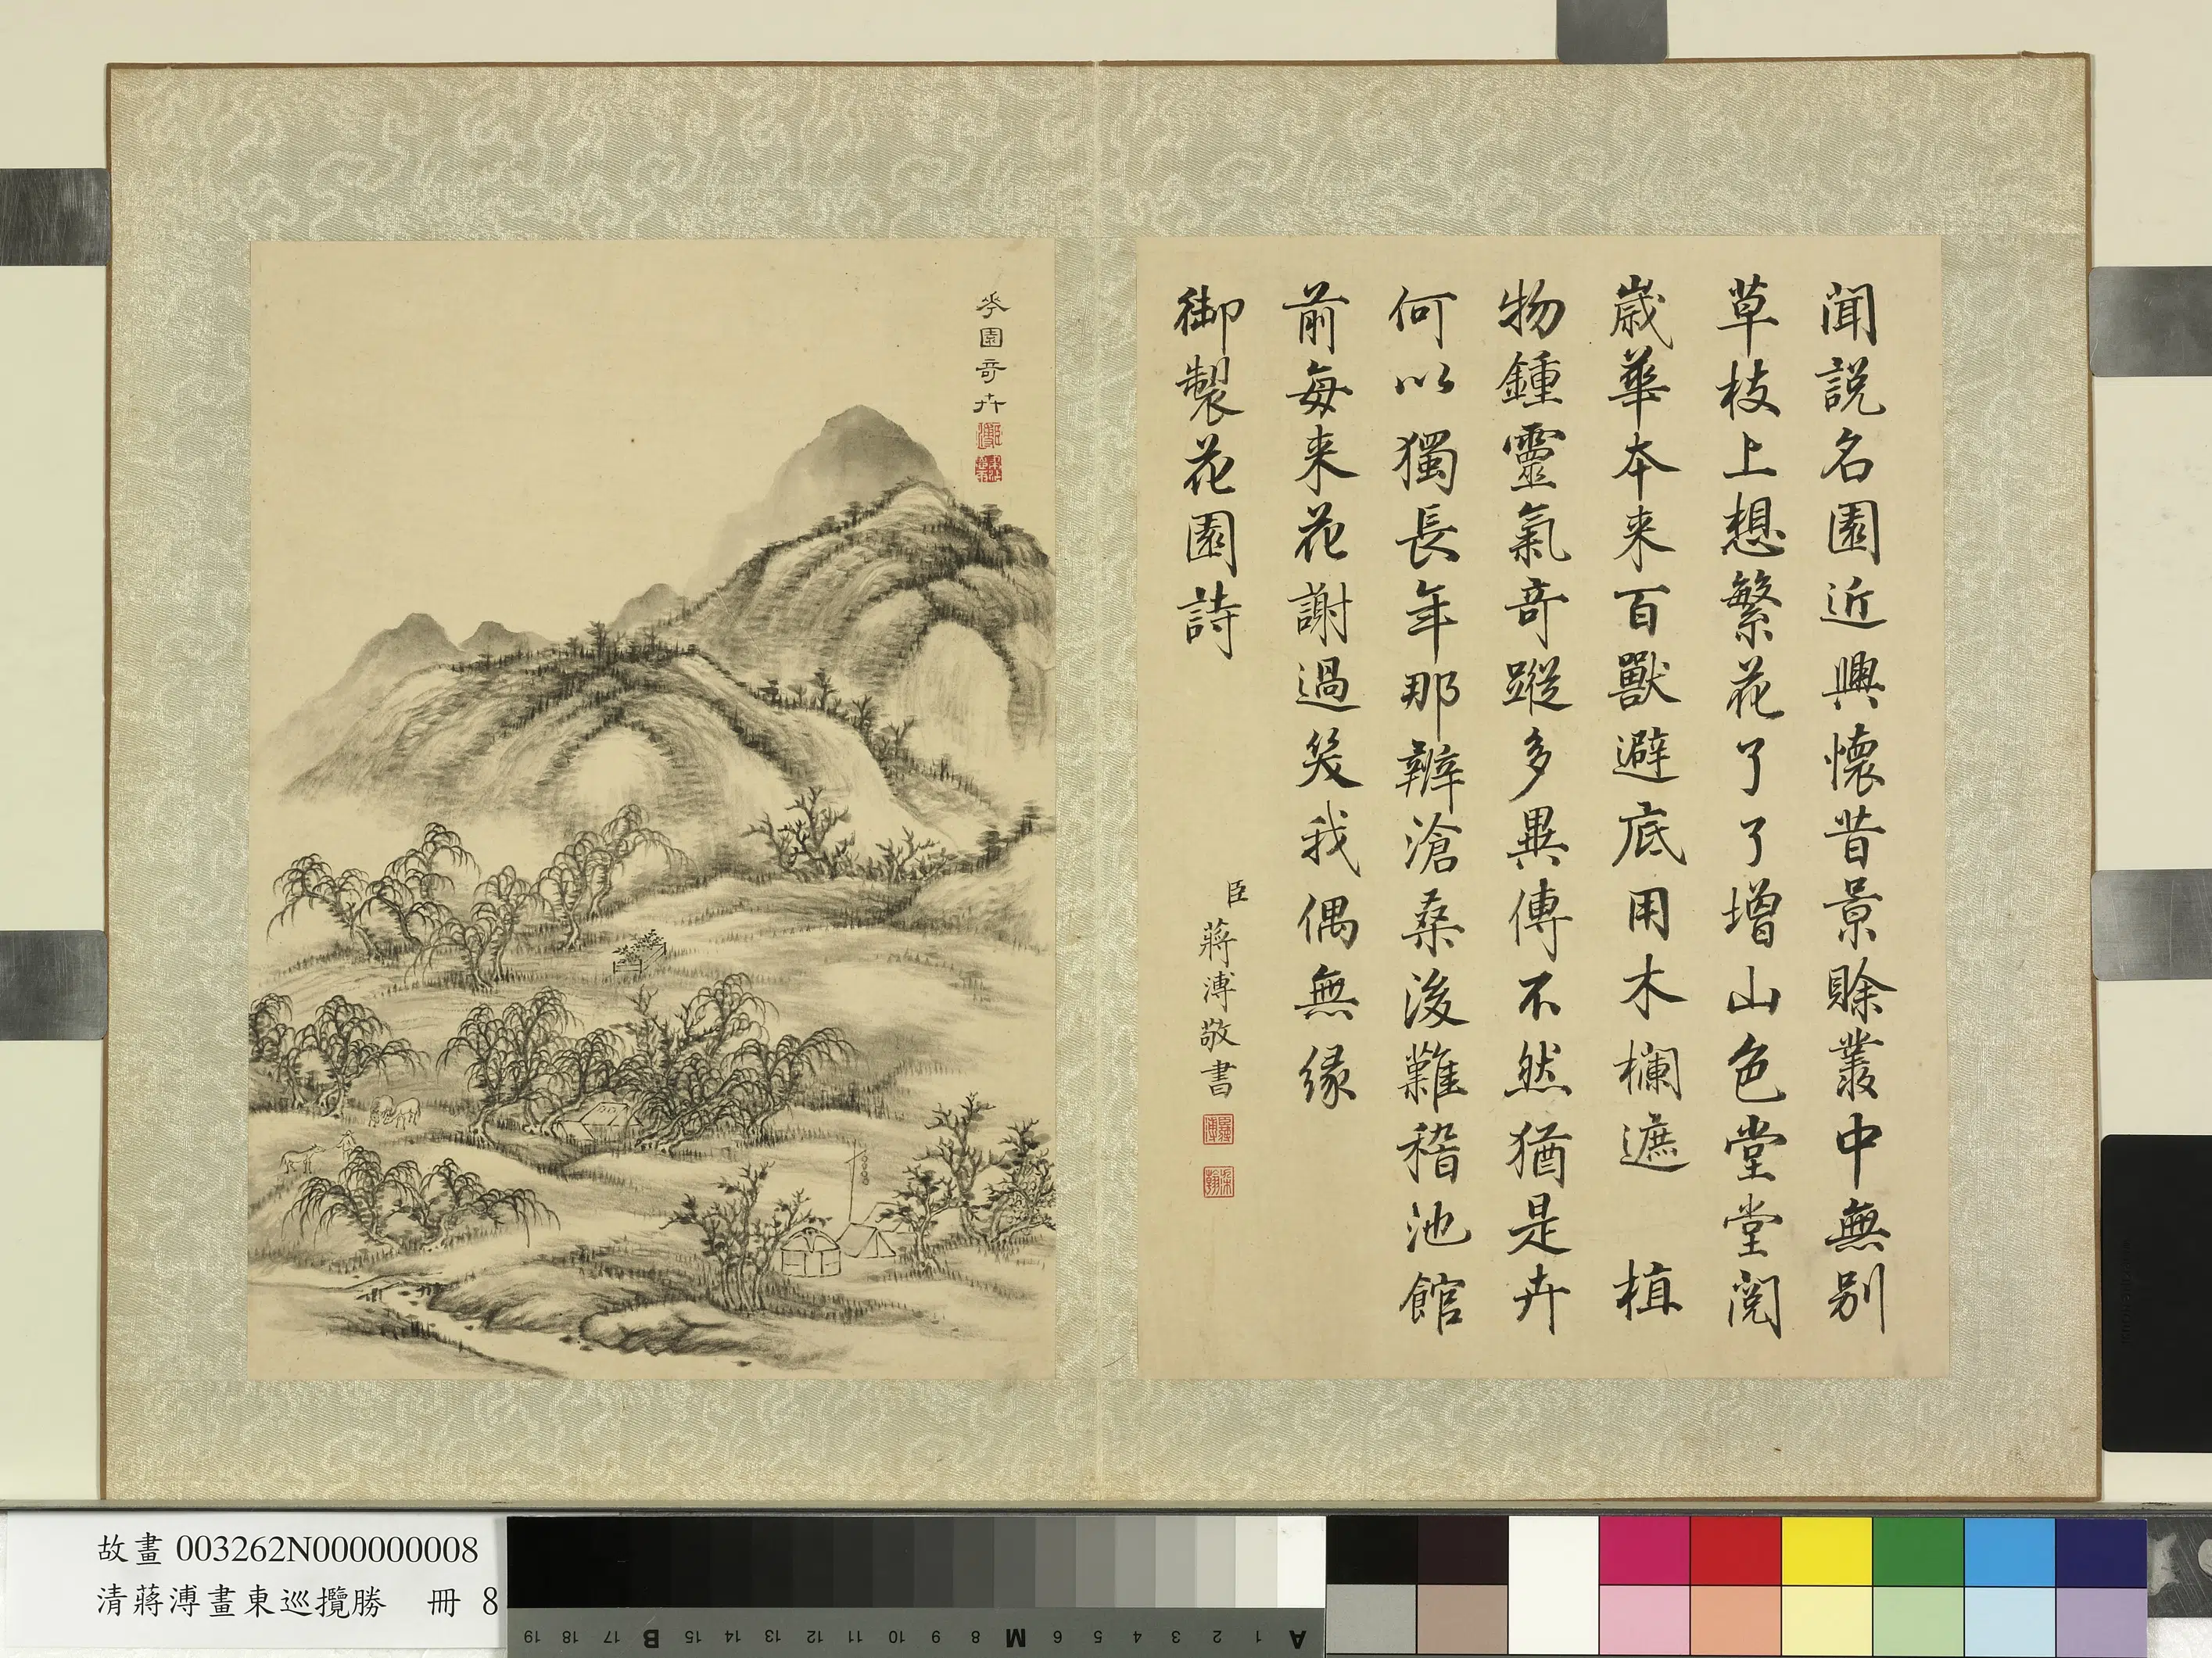 聞説名園近興懷昔景賖叢中無别
草枝上想繁花了了增山色堂堂閱
歳華本来百獸避底用木欄遮 植
物鍾靈氣奇蹤多異傳不然猶是卉
何以獨長年那辨滄桑後難稽池館
前每来花謝過笑我偶無縁
御製花園詩
臣蔣溥敬書
臣蔣溥
華園奇卉
故畫 003262N000000008
清蔣溥畫東巡攬勝 冊 8
19 18 17 B 15 14 13 12 11 10 9 8 M 6 5 4 3 2 1 A